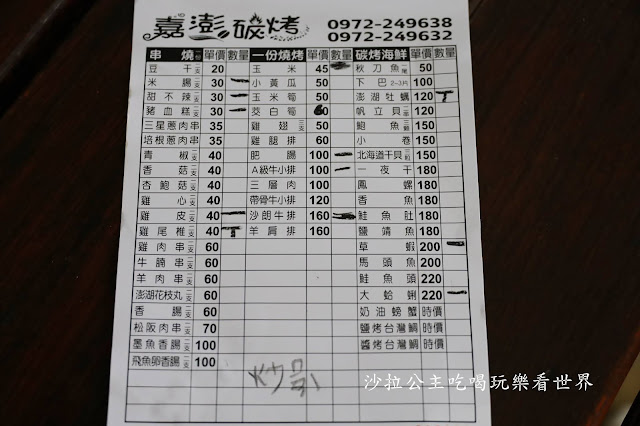 嘉澎碳烤 0972-249638
0972-249632
串燒 單價 數量 一份燒烤 單價 數量 碳烤海鮮 單價 數量
豆干 20 玉米 45 秋刀魚 50
米腸 30 一 小黃瓜 50 下巴 2~3片 100
甜不辣 30 一 玉米筍 50 澎湖牡蠣 120 T
豬血糕 30 一 茭白筍 60 帆立貝 120
三星蔥肉串 35 雞翅 50 鮑魚 150
培根蔥肉串 35 雞腿排 60 小卷 150
青椒 40 肥腸 100 一 北海道干貝 150
香菇 40 A級牛小排 100 一 一夜干 180
杏鮑菇 40 三層肉 100 鳳螺 180
雞心 40 帶骨牛小排 120 香魚 180
雞皮 40 一 沙朗牛排 160 魟魚肚 180
雞尾椎 40 T 羊肩排 160 鹽鯖魚 180
雞肉串 60 草蝦 200 一
牛腩串 60 馬頭魚 200
羊肉串 60 鮭魚頭 220
澎湖花枝丸 60 大蛤蜊 220 一
香腸 60 奶油螃蟹 時價
松阪肉串 70 鹽烤台灣鯛 時價
墨魚香腸 100 醬烤台灣鯛 時價
飛魚卵香腸 100
沙拉公主吃喝玩樂看世界